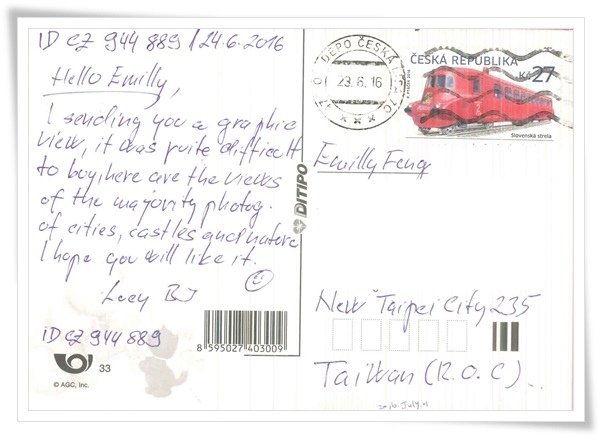 ID CZ 944 889 / 24.6.2016
Hello Emilly,
I sending you a graphic
view, it was quite difficult
to buy, here are the views
of the majority photog.
of cities, castles and nature
I hope you will like it.
Lucy BJ
ID CZ 944 889
33
© AGC, Inc.
8 595027 403009
DITIPO
DEPO ČESKÁ
23.6.16
ČESKÁ REPUBLIKA
Kč 27
Slovenská strela
Emilly Feng
New Taipei City 235
Taiwan (R.O.C)
2016. July. 11